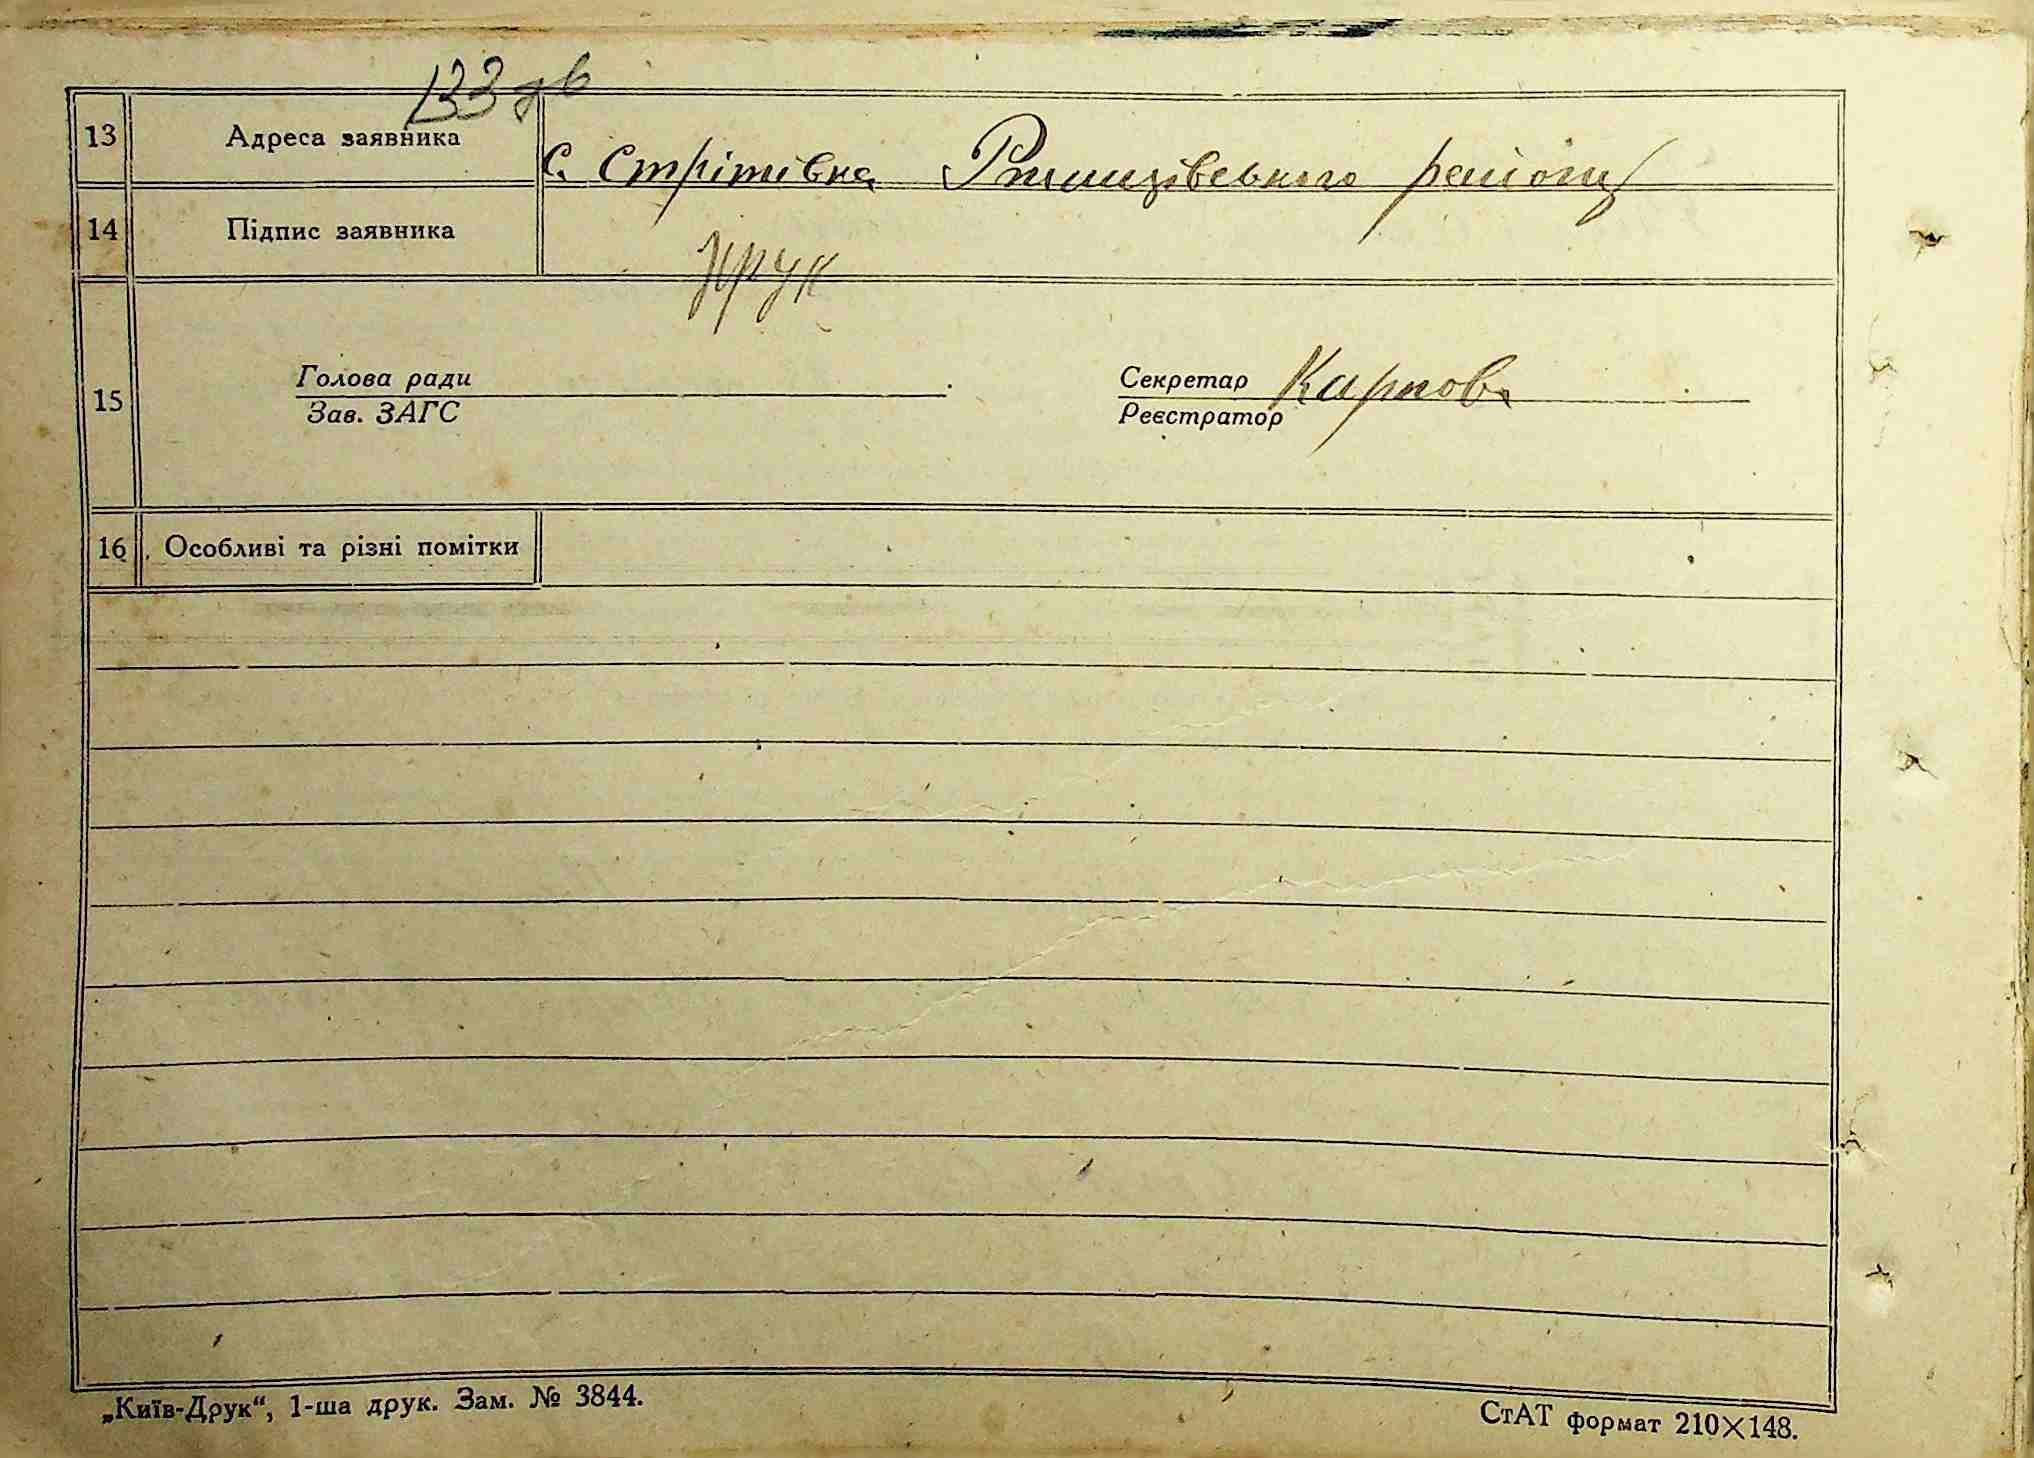 133 зв
13 Адреса заявника с. Стрітівка Ржищівського району
14 Підпис заявника Крук
15 Голова ради Секретар Карпова
Зав. ЗАГС Реєстратор
16 Особливі та різні помітки
„Київ-Друк“, 1-ша друк. Зам. № 3844. СтАТ формат 210×148.